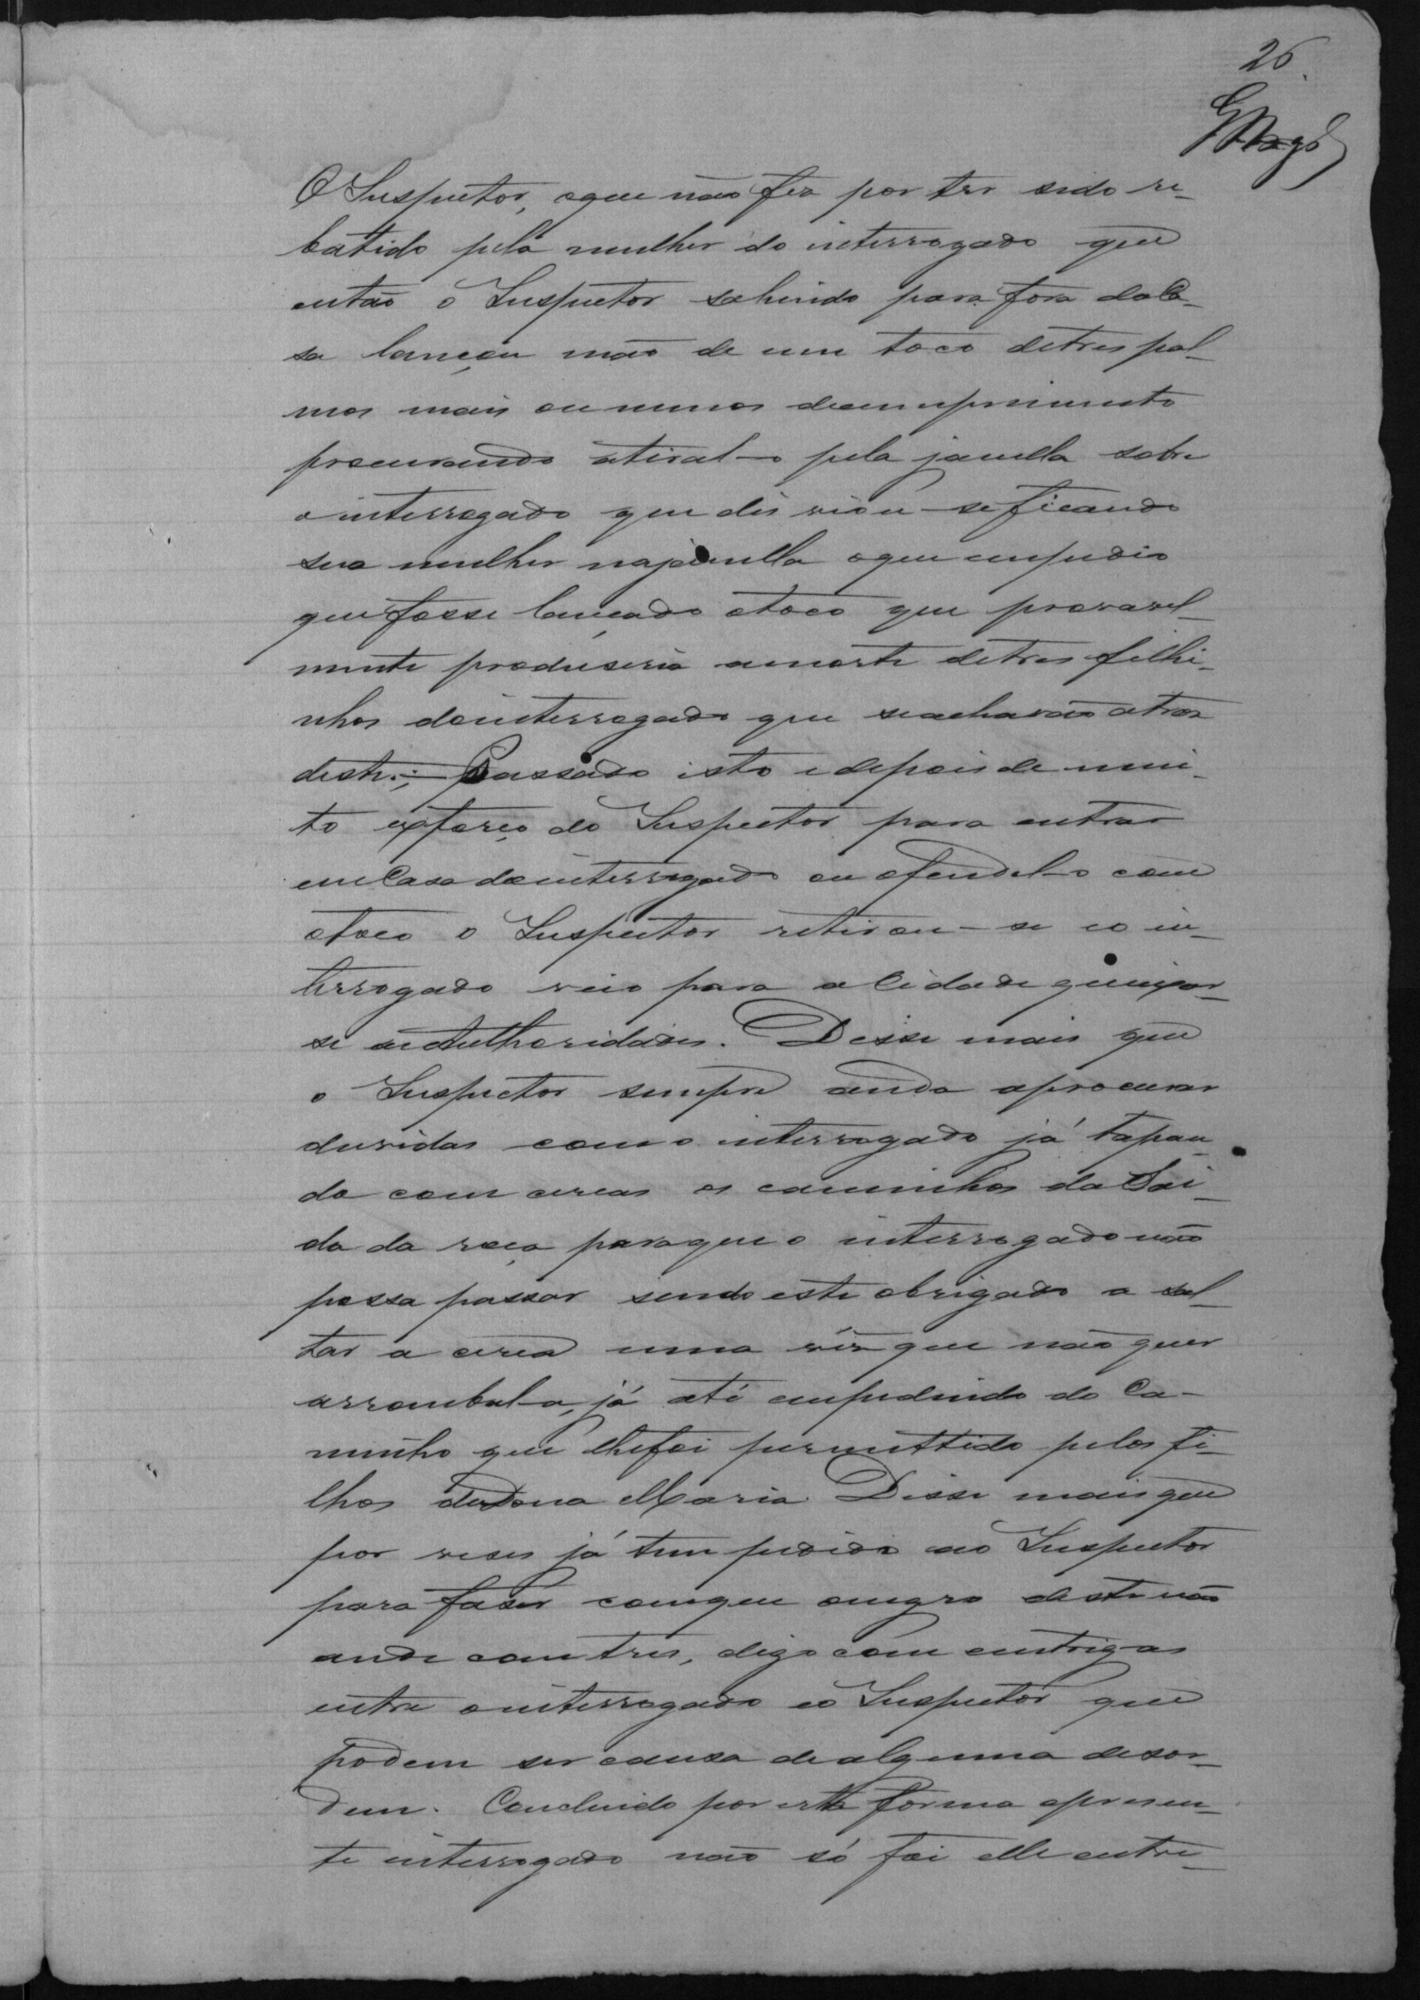 26
O Inspector, oque não fez por ter sido re-
batido pela mulher do interrogado que
então o Inspector sahindo para fora da Ca-
sa lançou mão de um toco detres pal-
mos mais ou menos decumprimento
procurando atiral-o pela janella sobre
o interrogado que disviou-se ficando
sua mulher najanella oque empedio
que fosse lançado otoco que provavel-
mente produsiria amorte detres filhi-
nhos dointerrogado que seachavão atras
deste.; Passado isto edepois de mui-
to exforço do Inspector para entrar
em Casa dointerrogado ou ofendel-o com
otoco o Inspector retirou-se eo in-
terrogado veio para a Cidade queixar-
se as authoridades. Disse mais que
o Inspector sempre anda aprocurar
duvidas com o interrogado já tapan-
do com cercas os caminhos da Sai-
da da roça paraque o interrogado não
possa passar sendo este obrigado a sal-
tar a cerca uma vez que não quer
arrombal-a, já até empedindo do Ca-
minho que lhefoi permittido pelos fi-
lhos de Dona Maria. Disse mais que
por veses já tem pedido ao Inspector
para faser comque onegro deste não
ande com tres, digo com entrigas
entre ointerrogado eo Inspector que
podem ser causa dealguma desor-
dem. Concluido por esta forma opresen-
te interrogado não só foi elle entre-